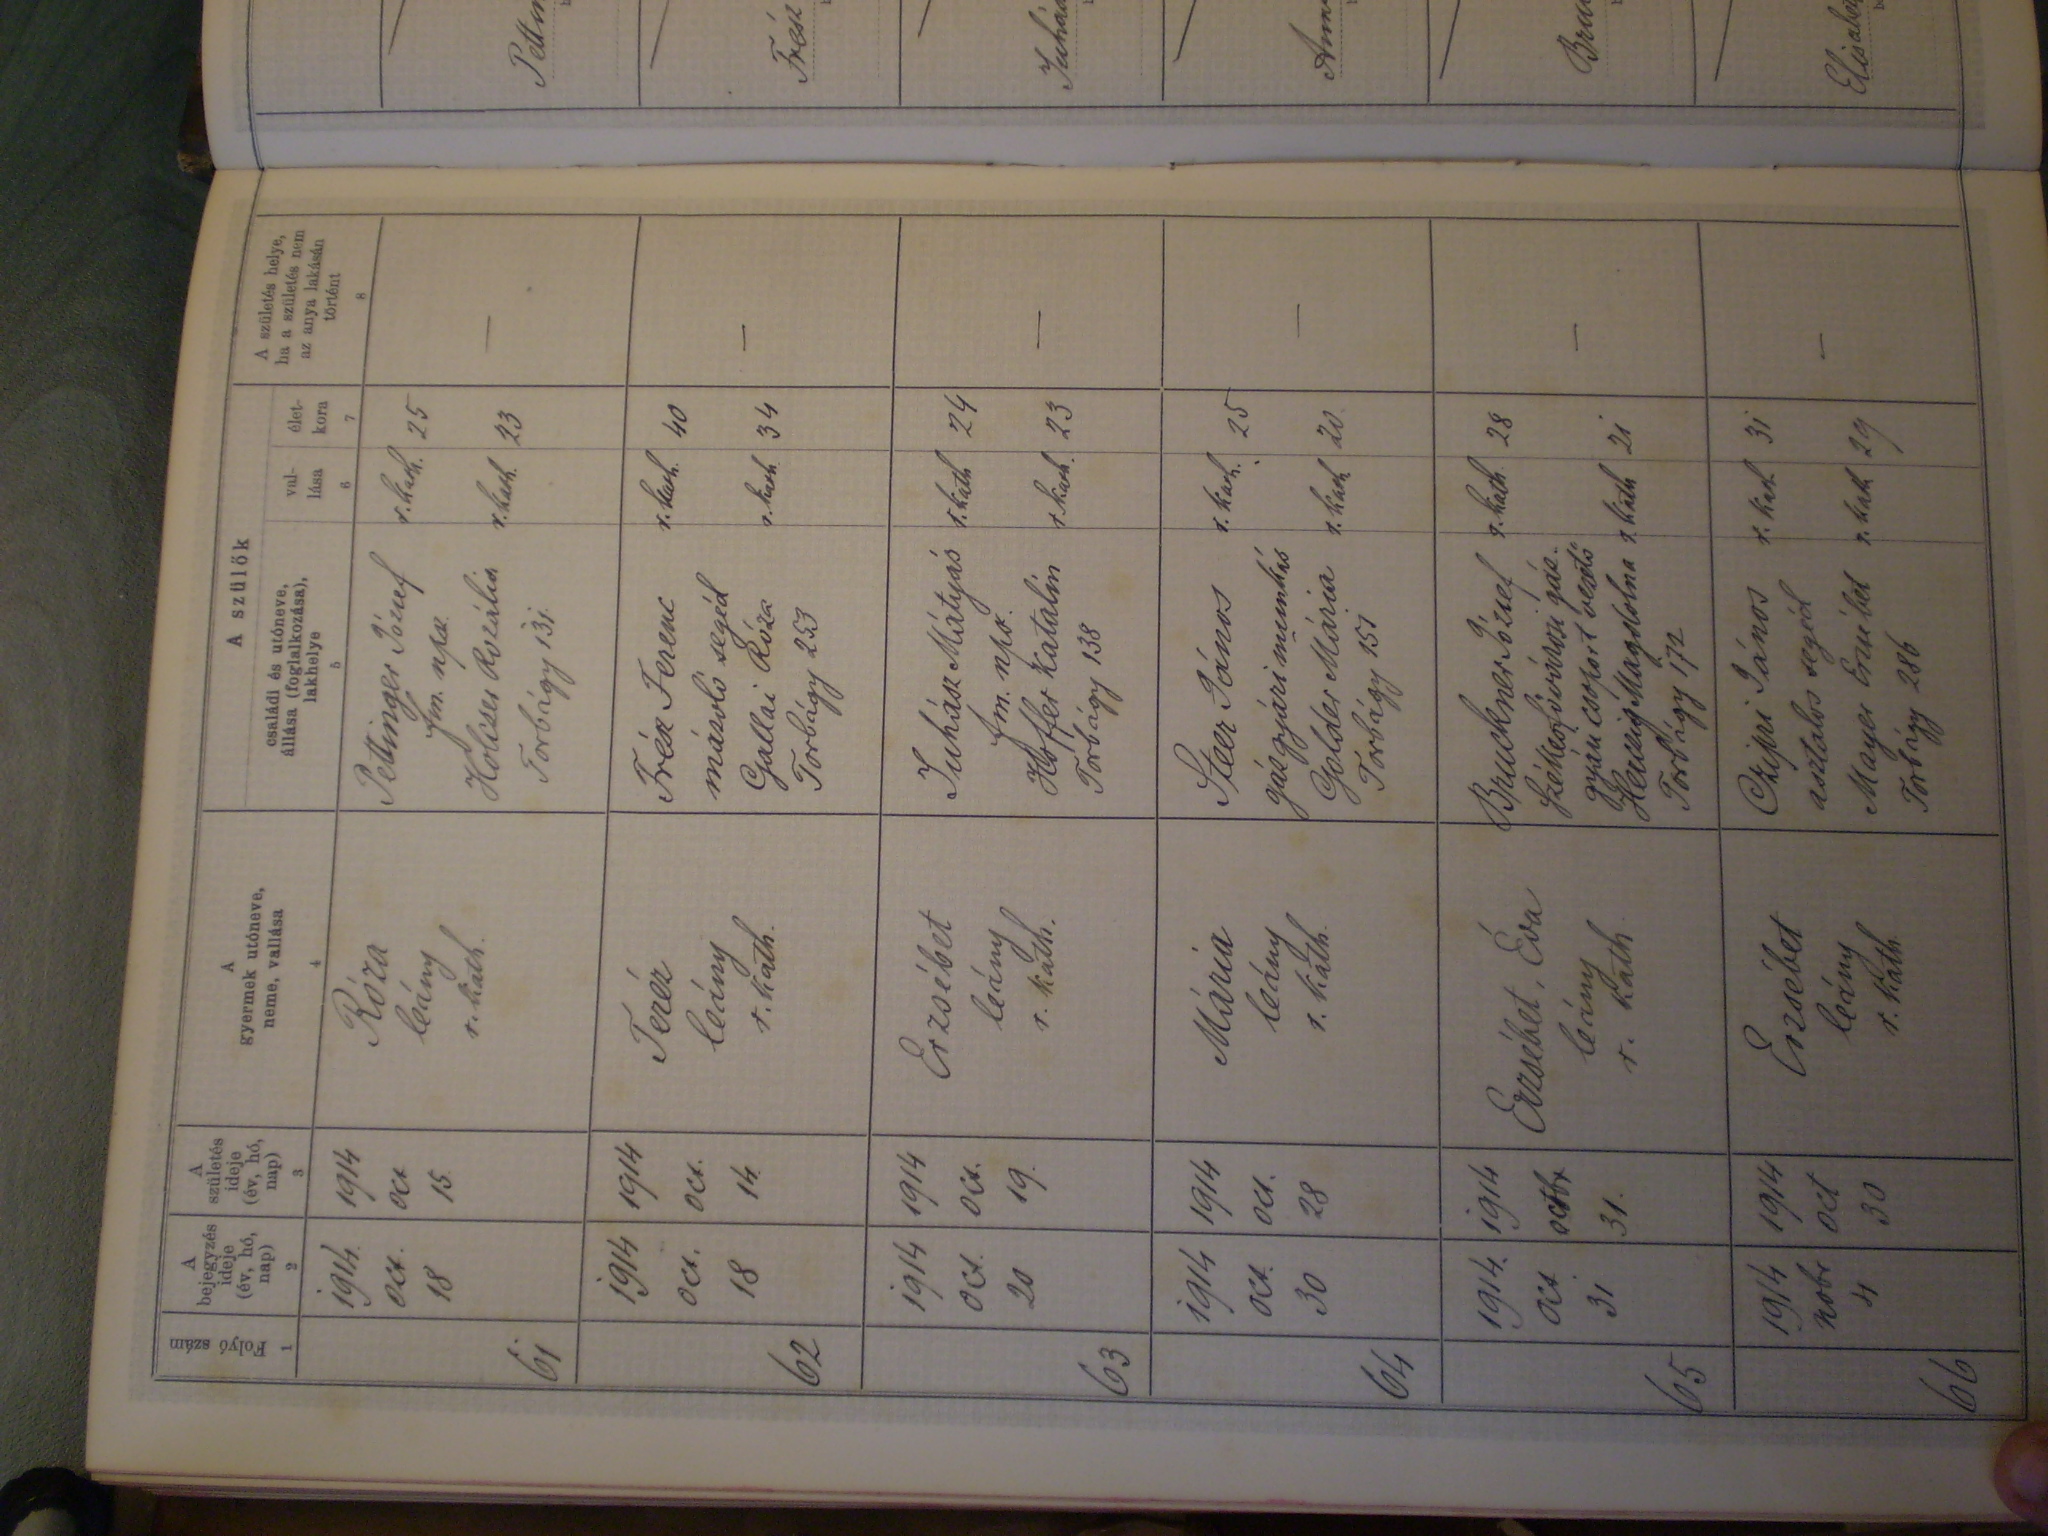 A szülők
Folyó szám
A
bejegyzés
ideje
(év, hó,
nap)
A
születés
ideje
(év, hó,
nap)
A
gyermek utóneve,
neme, vallása
családi és utóneve,
állása (foglalkozása),
lakhelye
val-
lása
élet-
kora
A születés helye,
ha a születés nem
az anya lakásán
történt
1
2
3
4
5
6
7
8
61
1914.
oct.
18
1914
oct
15.
Róza
leány
r. kath.
Pettinger József
fm. nps.
Rozália
Torbágy 131.
r. kath. 25
r. kath. 23
—
62
1914
oct.
18
1914
oct.
14.
Teréz
leány
r. kath.
Frész Ferenc
mázoló segéd
Gallai Róza
Torbágy 253
r. kath. 40
r. kath. 34
—
63
1914
oct.
20
1914
oct.
19.
Erzsébet
leány
r. kath.
Juhász Mátyás
fm. nps.
Hoffer Katalin
Torbágy 138
r. kath. 24
r. kath. 23
—
64
1914
oct.
30
1914
oct.
28
Mária
leány
r. kath.
Steer János
gázgyári munkás
Golder Mária
Torbágy 157
r. kath. 25
r. kath 20.
—
65
1914.
oct.
31
1914
octbr
31.
Erzsébet, Éva
leány
r. kath.
Bruckner József
Székesfővárosi gáz-
gyári csoport vezető
Magdolna
Torbágy 172
r. kath. 28
r. kath 21
—
66
1914
Nobr
4
1914
oct
30
Erzsébet
leány
r. kath.
Czipri János
asztalos segéd
Mayer Erzsébet
Torbágy 286
r. kath 31
r. kath 29
—
Frész
Juhász
Elisabeth